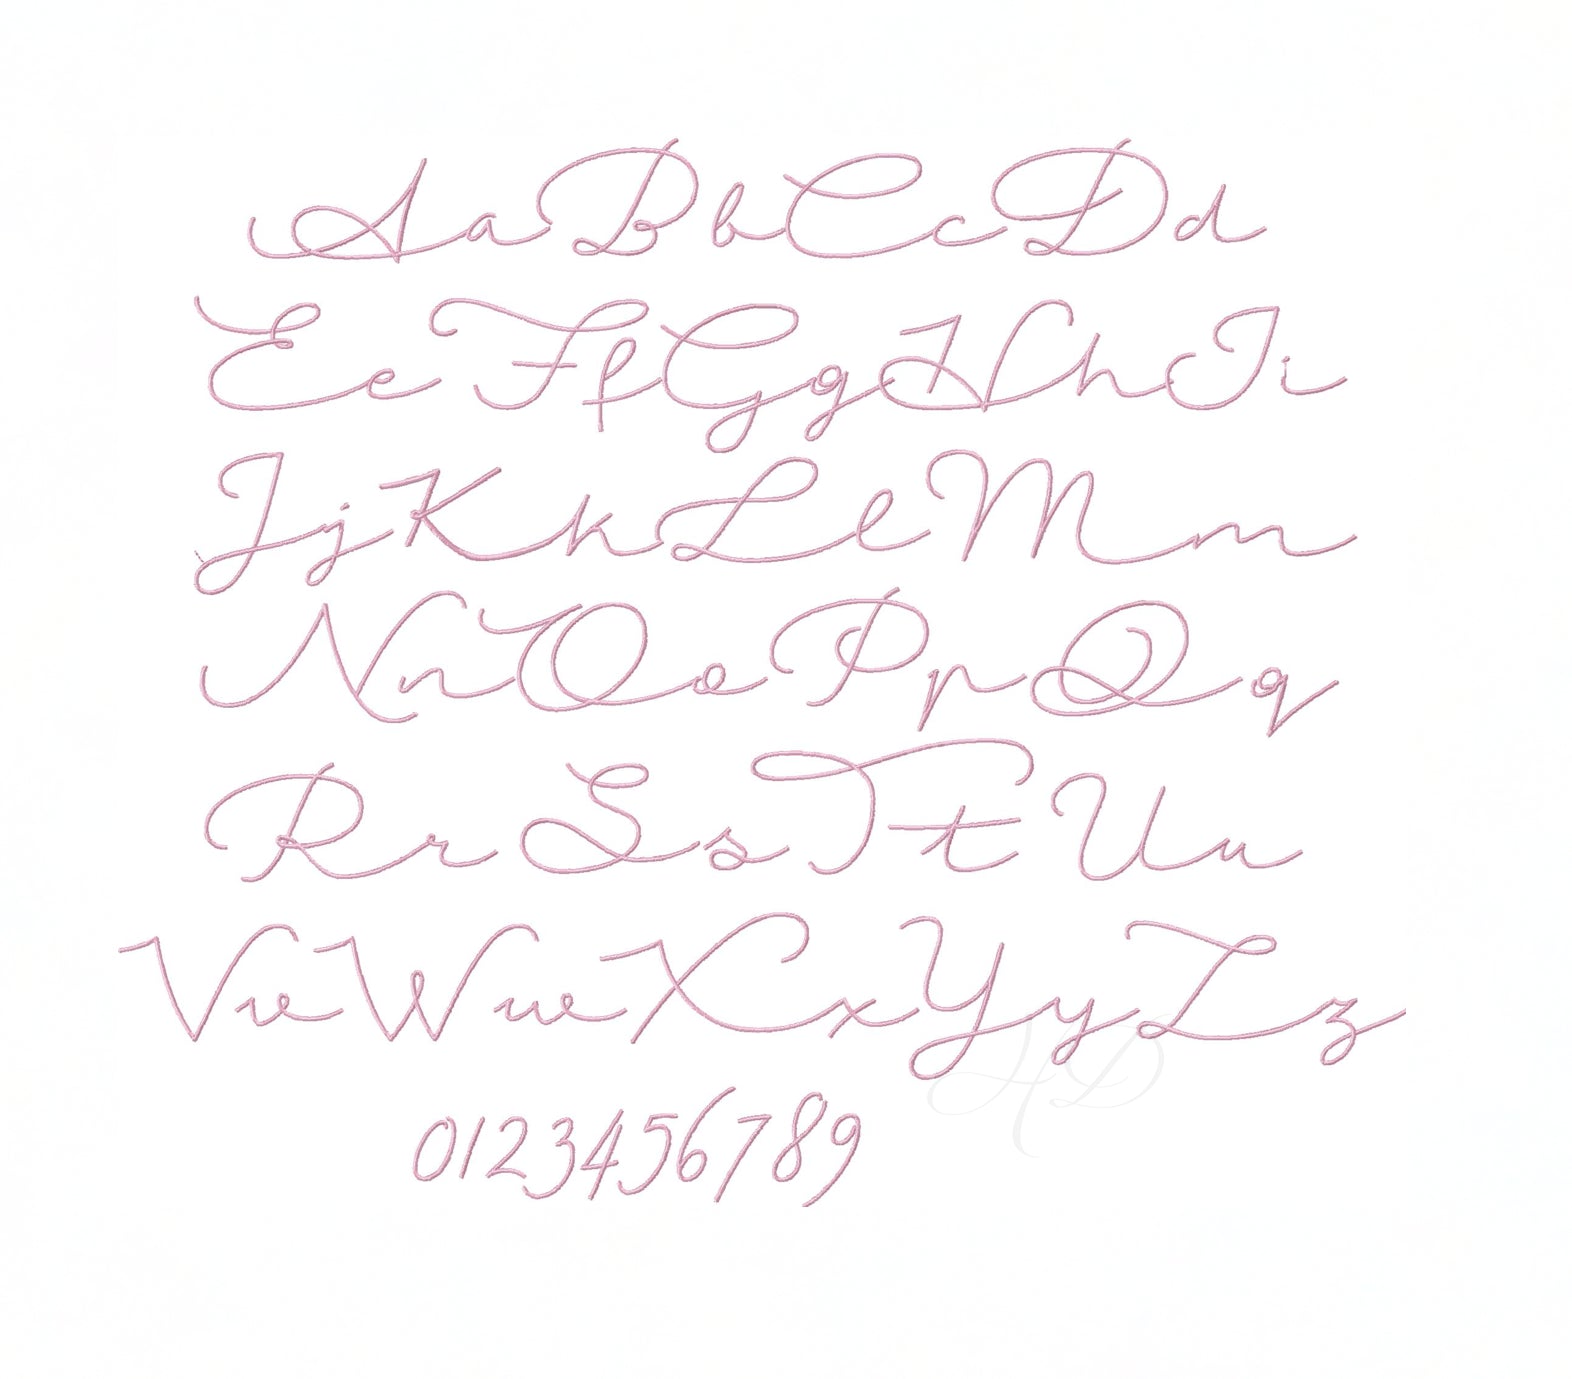 AaBbCcDd
EeFfGgHhIi
JjKkLlMm
NnOoPpQq
RrSsTtUu
VvWwXxYyZz
HD
0123456789